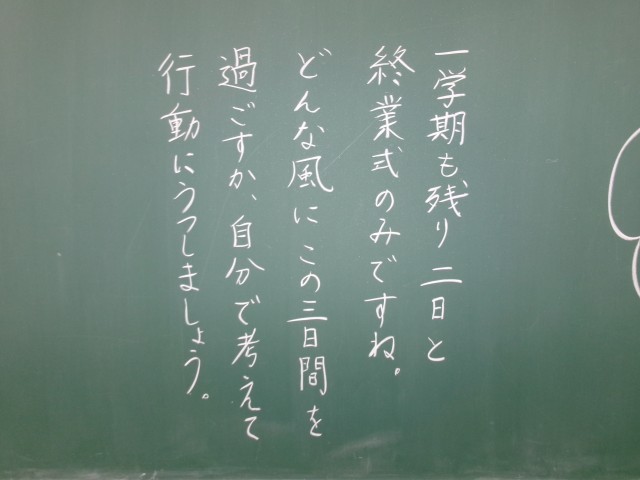 一学期も残り二日と
終業式のみですね。
どんな風にこの三日間を
過ごすか、自分で考えて
行動にうつしましょう。